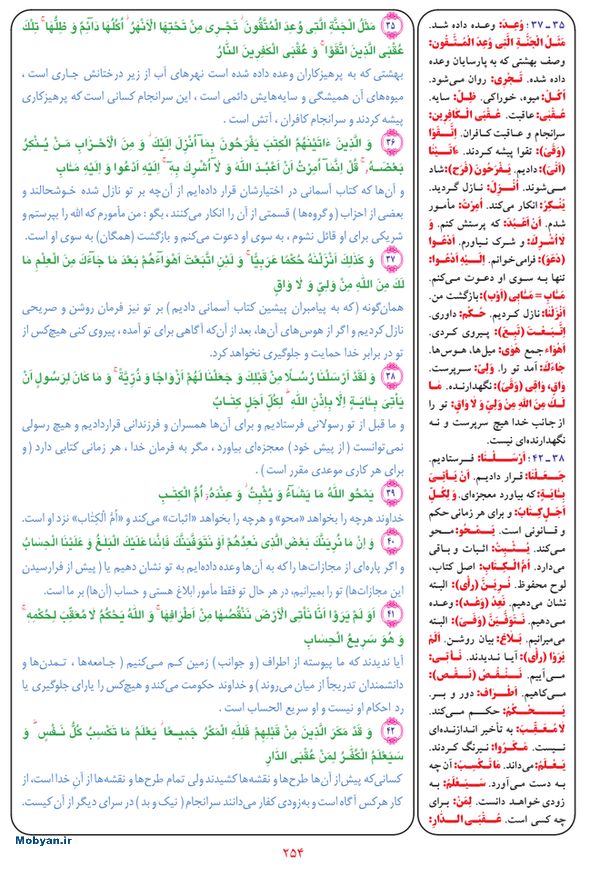 ۳۵ مَثَلُ الْجَنَّةِ الَّتی وُعِدَ الْمُتَّقُونَ ۖ تَجْری مِنْ تَحْتِهَا الْاَنْهٰرُ ۖ اُكُلُهَا دَآئِمٌ وَ ظِلُّهَا ۚ تِلْكَ
عُقْبَى الَّذینَ اتَّقَوْا ۖ وَ عُقْبَى الْكٰفِرینَ النَّارُ
بهشتی که به پرهیزکاران وعده داده شده است نهرهای آب از زیر درختانش جاری است ،
میوه‌های آن همیشگی و سایه‌هایش دائمی است ، این سرانجام کسانی است که پرهیزکاری
پیشه کردند و سرانجام کافران ، آتش است .
۳۶ وَ الَّذینَ ءَاتَیْنٰهُمُ الْكِتٰبَ یَفْرَحُونَ بِمَآ اُنْزِلَ اِلَیْكَ ۖ وَ مِنَ الْاَحْزَابِ مَنْ یُنْكِرُ
بَعْضَهُ ۚ قُلْ اِنَّمَآ اُمِرْتُ اَنْ اَعْبُدَ اللّٰهَ وَ لَآ اُشْرِكَ بِهِ ۚ اِلَیْهِ اَدْعُوا وَ اِلَیْهِ مَـٔابِ
و آن‌ها که کتاب آسمانی در اختیارشان قرار داده‌ایم از آن‌چه بر تو نازل شده خوشحالند و
بعضی از احزاب (و گروه‌ها ) قسمتی از آن را انکار می‌کنند ، بگو : من مأمورم که الله را بپرستم و
شریکی برای او قائل نشوم ، به سوی او دعوت می‌کنم و بازگشت (همگان) به سوی او است.
۳۷ وَ كَذٰلِكَ اَنْزَلْنٰهُ حُكْمًا عَرَبِیًّا ۚ وَ لَئِنِ اتَّبَعْتَ اَهْوَآءَهُمْ بَعْدَ مَا جَآءَكَ مِنَ الْعِلْمِ مَا
لَكَ مِنَ اللّٰهِ مِنْ وَلِیٍّ وَ لَا وَاقٍ
همان‌گونه (که به پیامبران پیشین کتاب آسمانی دادیم ) بر تو نیز فرمان روشن و صریحی
نازل کردیم و اگر از هوس‌های آن‌ها، بعد از آن‌که آگاهی برای تو آمده ، پیروی کنی هیچ‌کس از
تو در برابر خدا حمایت و جلوگیری نخواهد کرد.
۳۸ وَ لَقَدْ اَرْسَلْنَا رُسُلًا مِنْ قَبْلِكَ وَ جَعَلْنَا لَهُمْ اَزْوَاجًا وَ ذُرِّیَّةً ۚ وَ مَا كَانَ لِرَسُولٍ اَنْ
یَاْتِیَ بِـٔایَةٍ اِلَّا بِاِذْنِ اللّٰهِ ۗ لِكُلِّ اَجَلٍ كِتَابٌ
و ما قبل از تو رسولانی فرستادیم و برای آن‌ها همسران و فرزندانی قراردادیم و هیچ رسولی
نمی‌توانست ( از پیش خود ) معجزه‌ای بیاورد ، مگر به فرمان خدا ، هر زمانی کتابی دارد ( و
برای هر کاری موعدی مقرر است ) .
۳۹ یَمْحُو اللّٰهُ مَا یَشَآءُ وَ یُثْبِتُ ۖ وَ عِنْدَهُٓ اُمُّ الْكِتٰبِ
خداوند هرچه را بخواهد «محو» و هرچه را بخواهد «اثبات» می‌کند و «اُمُّ الْكِتَاب» نزد او است.
۴۰ وَ اِنْ مَا نُرِیَنَّكَ بَعْضَ الَّذی نَعِدُهُمْ اَوْ نَتَوَفَّیَنَّكَ فَاِنَّمَا عَلَیْكَ الْبَلٰغُ وَ عَلَیْنَا الْحِسَابُ
و اگر پاره‌ای از مجازات‌ها را که به آن‌ها وعده داده‌ایم به تو نشان دهیم یا ( پیش از فرارسیدن
این مجازات‌ها) تو را بمیرانیم، در هر حال تو فقط مأمور ابلاغ هستی و حساب (آن‌ها) بر ما است.
۴۱ اَوَ لَمْ یَرَوْا اَنَّا نَاْتِی الْاَرْضَ نَنْقُصُهَا مِنْ اَطْرَافِهَا ۚ وَ اللّٰهُ یَحْكُمُ لَا مُعَقِّبَ لِحُكْمِهِ ۚ
وَ هُوَ سَرِیعُ الْحِسَابِ
آیا ندیدند که ما پیوسته از اطراف (و جوانب ) زمین کم می‌کنیم ( جامعه‌ها ، تمدن‌ها و
دانشمندان تدریجاً از میان می‌روند ) و خداوند حکومت می‌کند و هیچ‌کس را یارای جلوگیری یا
رد احکام او نیست و او سریع الحساب است .
۴۲ وَ قَدْ مَكَرَ الَّذینَ مِنْ قَبْلِهِمْ فَلِلّٰهِ الْمَكْرُ جَمیعًا ۖ یَعْلَمُ مَا تَكْسِبُ كُلُّ نَفْسٍ ۗ وَ
سَیَعْلَمُ الْكُفّٰرُ لِمَنْ عُقْبَى الدَّارِ
کسانی‌که پیش از آن‌ها طرح‌ها و نقشه‌ها کشیدند ولی تمام طرح‌ها و نقشه‌ها از آنِ خدا است، از
کار هرکس آگاه است و به‌زودی کفار می‌دانند سرانجام ( نیک و بد ) در سرای دیگر از آن کیست.
۳۵ ـ ۳۷ : وُعِدَ: وعده داده شد.
مَثَلُ الْجَنَّةِ الَّتی وُعِدَ الْمُتَّقُونَ:
وصف بهشتی که به پارسایان وعده
داده شده. تَجْری: روان می‌شود.
اُكُلْ: میوه، خوراکی. ظِلّ: سایه.
عُقْبَى: عاقبت. عُقْبَى الْكَافِرینَ:
سرانجام و عاقبت کافران. اِتَّقَوْا
(وَقَیَ): تقوا پیشه کردند. ءَاتَیْنَا
(اَتَیَ): دادیم. یَفْرَحُونَ (فَرَحَ): شاد
می‌شوند. اُنْزِلَ: نازل گردید.
یُنْكِرُ: انکار می‌کند. اُمِرْتُ: مأمور
شدم. اَنْ اَعْبُدَ: که پرستش کنم. وَ
لَا اُشْرِكَ: و شرک نیاورم. اَدْعُوا
(دَعَوَ): فرامی‌خوانم. اِلَیْهِ اَدْعُوا:
تنها به سوی او دعوت می‌کنم.
مَـٔابِ = مَـٔابِی (اَوْب): بازگشت من.
اَنْزَلْنَا: نازل کردیم. حُكْم: داوری.
اِتَّبَعْتَ (تَبِعَ): پیروی کردی.
اَهْوَاء جمع هَوَی: میل‌ها، هوس‌ها.
جَاءَكَ: آمد تو را. وَلِیّ: سرپرست.
وَاقٍ، وَاقِی (وَقَیَ): نگهدارنده. مَا
لَكَ مِنَ اللّٰهِ مِنْ وَلِیٍّ وَ لَا وَاقٍ: تو را
از جانب خدا هیچ سرپرست و نه
نگهدارنده‌ای نیست.
۳۸ ـ ۴۲ : اَرْسَلْنَا: فرستادیم.
جَعَلْنَا: قرار دادیم. اَنْ یَاْتِیَ
بِـٔایَةٍ: که بیاورد معجزه‌ای. وَ لِكُلِّ
اَجَلٍ كِتَابٌ: و برای هر زمانی حکم
و قانونی است. یَمْحُو: محو
می‌کند. یُثْبِتُ: اثبات و باقی
می‌دارد. اُمُّ الْكِتَابِ: اصل کتاب،
لوح محفوظ. نُرِیَنَّ (رَأَیَ): البته
نشان می‌دهیم. نَعِدُ (وَعَدَ): وعده
می‌دهیم. نَتَوَفَّیَنَّ (وَفَیَ): البته
میرانیم. بَلَاغ: بیان روشن. اَلَمْ
یَرَوْا (رَأَیَ): آیا ندیدند. نَأْتِی:
می‌آییم. نَنْقُصُ (نَقَصَ):
می‌کاهیم. اَطْرَاف: دور و بر.
یَحْكُمُ: حکم می‌کند.
لَا مُعَقِّبَ: به تأخیر اندازنده‌ای
نیست. مَكَرُوا: نیرنگ کردند.
یَعْلَمُ: می‌داند. مَاتَكْسِبُ: آن چه
به دست می‌آورد. سَیَعْلَمُ: به
زودی خواهد دانست. لِمَنْ: برای
چه کسی است. عُقْبَى الدَّارِ:
Mobyan.ir
۲۵۴